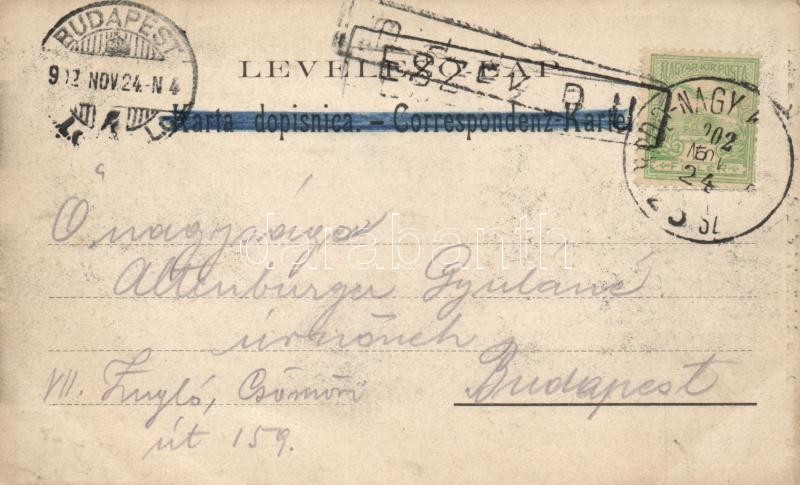 BUDAPEST
902 NOV. 24. N 4
LEVELEZŐ-LAP.
Karta dopisnica. – Correspondenz-Karte
MAGYAR KIR. POSTA
FILLÉR
NAGY
902
NOV
24
Őnagysága
Altenburger Gyuláné
úrnőnek
VII. Zugló, Csömöri
Budapest
út 159.
darabanth